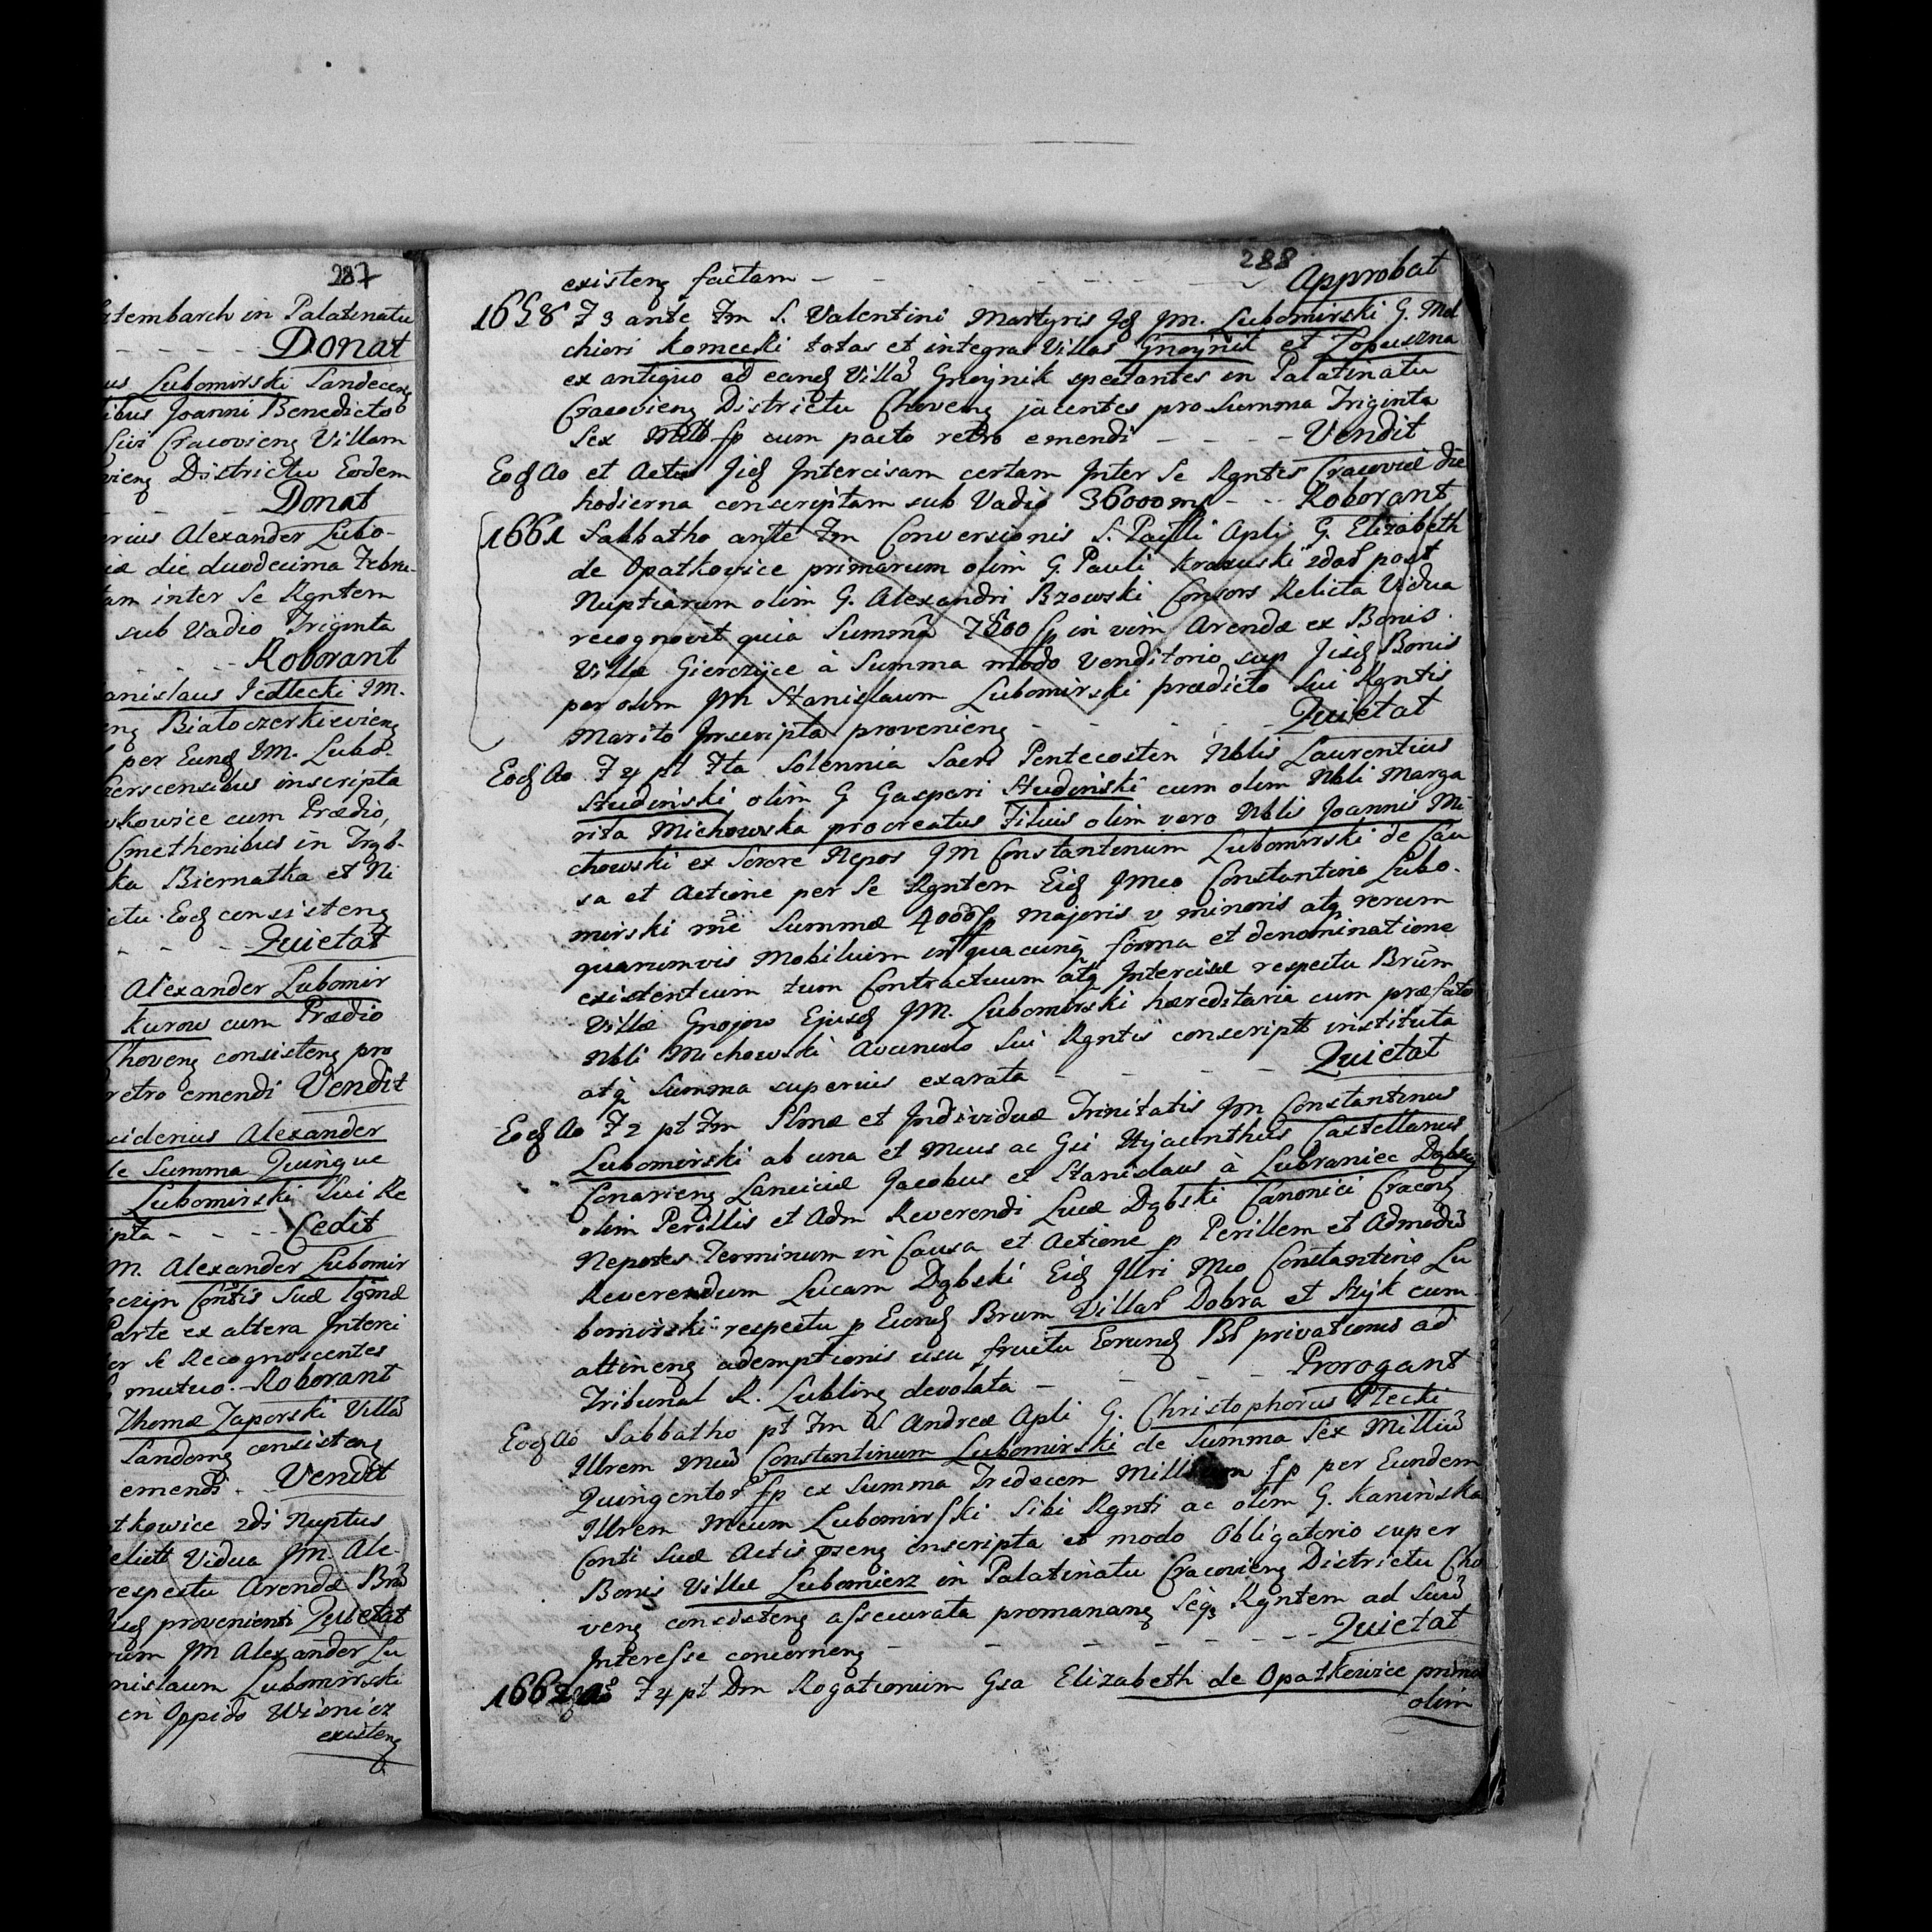 287
stembarch in Palatinatu
- - - - Donat
us Lubomirski Sandecens
ibus Joanni Benedicto
Civi Cracovieng Villam
vieng Districtu Eodem
- - Donat
erius Alexander Lubo-
iæ die duodecima Febru-
am inter Se Rgntem
sub Vadio Triginta
- - - Roborant
anislaus Jedlecki JM.
ng Biatoczerkievieng
per Eung JM. Lubo-
erscensibus inscripta
kowice cum Prædio,
Cmethonibus in Trgb-
ka Biernatka et Ni
ictu Eog consisteng
- - - Quietat
Alexander Lubomir
Kurow cum Prædio
Choveng consisteng pro
retro emendi Vendit
siderius Alexander
de Summa Quinque
Lubomirski Sui Re
ipta - - - Cedit
M. Alexander Lubomir
czijn Contis Suæ Igmæ
Parte ex altera Interci
er Se Recognoscentes
mutuo - Roborant
Thomæ Zaporski Villa
Sandomg consisteng
emendi - Vendit
tkowice 2di Nuptus
elicta Vidua JM. Ale-
respectu Arendæ Bru
isg provenienti Quietat
rum JM Alexander Lu
nislaum Lubomirski
in Oppido Wisnicz
existeng
288
existeng factam - - - - - - Approbat
1658 F 3 ante Fm S. Valentini Martyris Jg JM. Lubomirski G. Mel
chiori Komecki totas et integras Villas Gnoynik et Lopuszna
ex antiquo ad eang Villa Gnoynik spectantes in Palatinatu
Cracovieng Districtu Choveng jacentes pro Summa Triginta
Sex Mill fp cum pacto retro emendi - - - - Vendit
Eog Ao et Actis Jig Intercisam certam Inter Se Rgntes Cracoviæ die
hodierna conscriptam sub Vadio 36000 mp - - Roborant
1661 Sabbatho ante Fm Conversionis S. Pauli Apli G. Elizabeth
de Opatkowice primarum olim G. Pauli Krasuski 2dar post
Nuptiarum olim G. Alexandri Brzowski Consors Relicta Vidua
recognovit quia Summa 7800 fp in vim Arendæ ex Bonis
Villæ Gierczyce à Summa modo Venditorio sup Jisg Bonis
per olim JM Stanislaum Lubomirski prædicto Sui Rgntis
Marito Inscripta provenieng - - - - - Quietat
Eog Ao F 4 pt Fta Solennia Sacro Pentecosten Nblis Laurentius
Studenski olim G Gaspari Studenski cum olim Nbli Marga
rita Michowska procreatus Filius olim vero Nblis Joannis Mi-
chowski ex Sorore Nepos JM Constantinum Lubomirski de Cau
sa et Actione per Se Rgntem Eig JMeo Constantino Lubo-
mirski mẽ Summæ 4000 fp majoris v minoris atq rerum
quarumvis Mobilium in quacunq forma et denominatione
existentium tum Contractuum atq Intercisæ respectu Brum
Villæ Gnojow Ejusg JM. Lubomirski hæreditaria cum præfato
Nbli Michowski Avunculo Sui Rgntis conscript instituta
atq Summa superius exarata - - - - Quietat
Eog Ao F 2 pt Fm Slmæ et Individuæ Trinitatis Jm Constantinus
Lubomirski ab una et Meus ac Gsi Hyacinthus Castellanus
Conarieng Lanciciæ Jacobus et Stanislaus à Lubraniec Dgbscy
olim Perillis et Adm Reverendi Lucæ Dgbski Canonici Cracovg
Nepotes Terminum in Causa et Actione p Perillem et Admodu
Reverendum Lucam Dgbski Eig Jllri Meo Constantino Lu
bomirski respectu p Eiong Brum Villar Dobra et Stijk cum
attineng ademptionis usu fructu Eorung Bs privationis ad
Tribunal R. Lubling devoluta - - - - Prorogant
Eog Ao Sabbatho pt Fm S Andreæ Apli G. Christophorus Ptecki
Jllrem Meu Constantinum Lubomirski de Summa Sex Milliu
Quingentor fp ex Summa Tredecem Millium fp per Eundem
Jllrem Meum Lubomirski Sibi Rgnti ac olim G. Kaninska
Conti Suæ Actis pseng inscripta et modo Obligatorio super
Bonis Villæ Lubomierz in Palatinatu Cracovieng Districtu Cho
veng consisteng assecurata promanang Seqz Rgntem ad Suu
Interesse concerneng - - - - - - - Quietat
1662 Ao F 4 pt Dm Rogationum Gsa Elizabeth de Opatkowice primo
olim